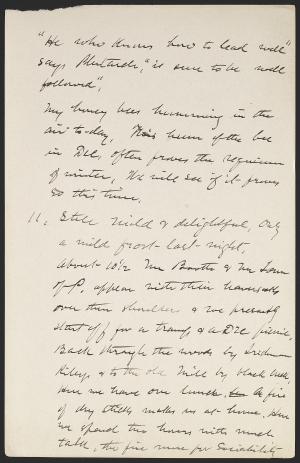 "He who knows how to lead well"
says Plutarch, "is sure to be well
followed".
My honey bees humming in the
air to-day. This hum of the bee
in Dec. often proves the requiem
of winter. We will see if it proves
so this time.
11. Still mild & delightful, only
a mild frost last night.
About 10½ Mr Booth & Mr
of P. appear with their haversacks
over their shoulders & we presently
start off for a tramp & a Dec picnic,
Back through the woods by
& to the old mill by black creek,
Here we have our lunch. A fire
of dry sticks makes us at home. Here
we spend two hours with much
talk, the fire more for sociability